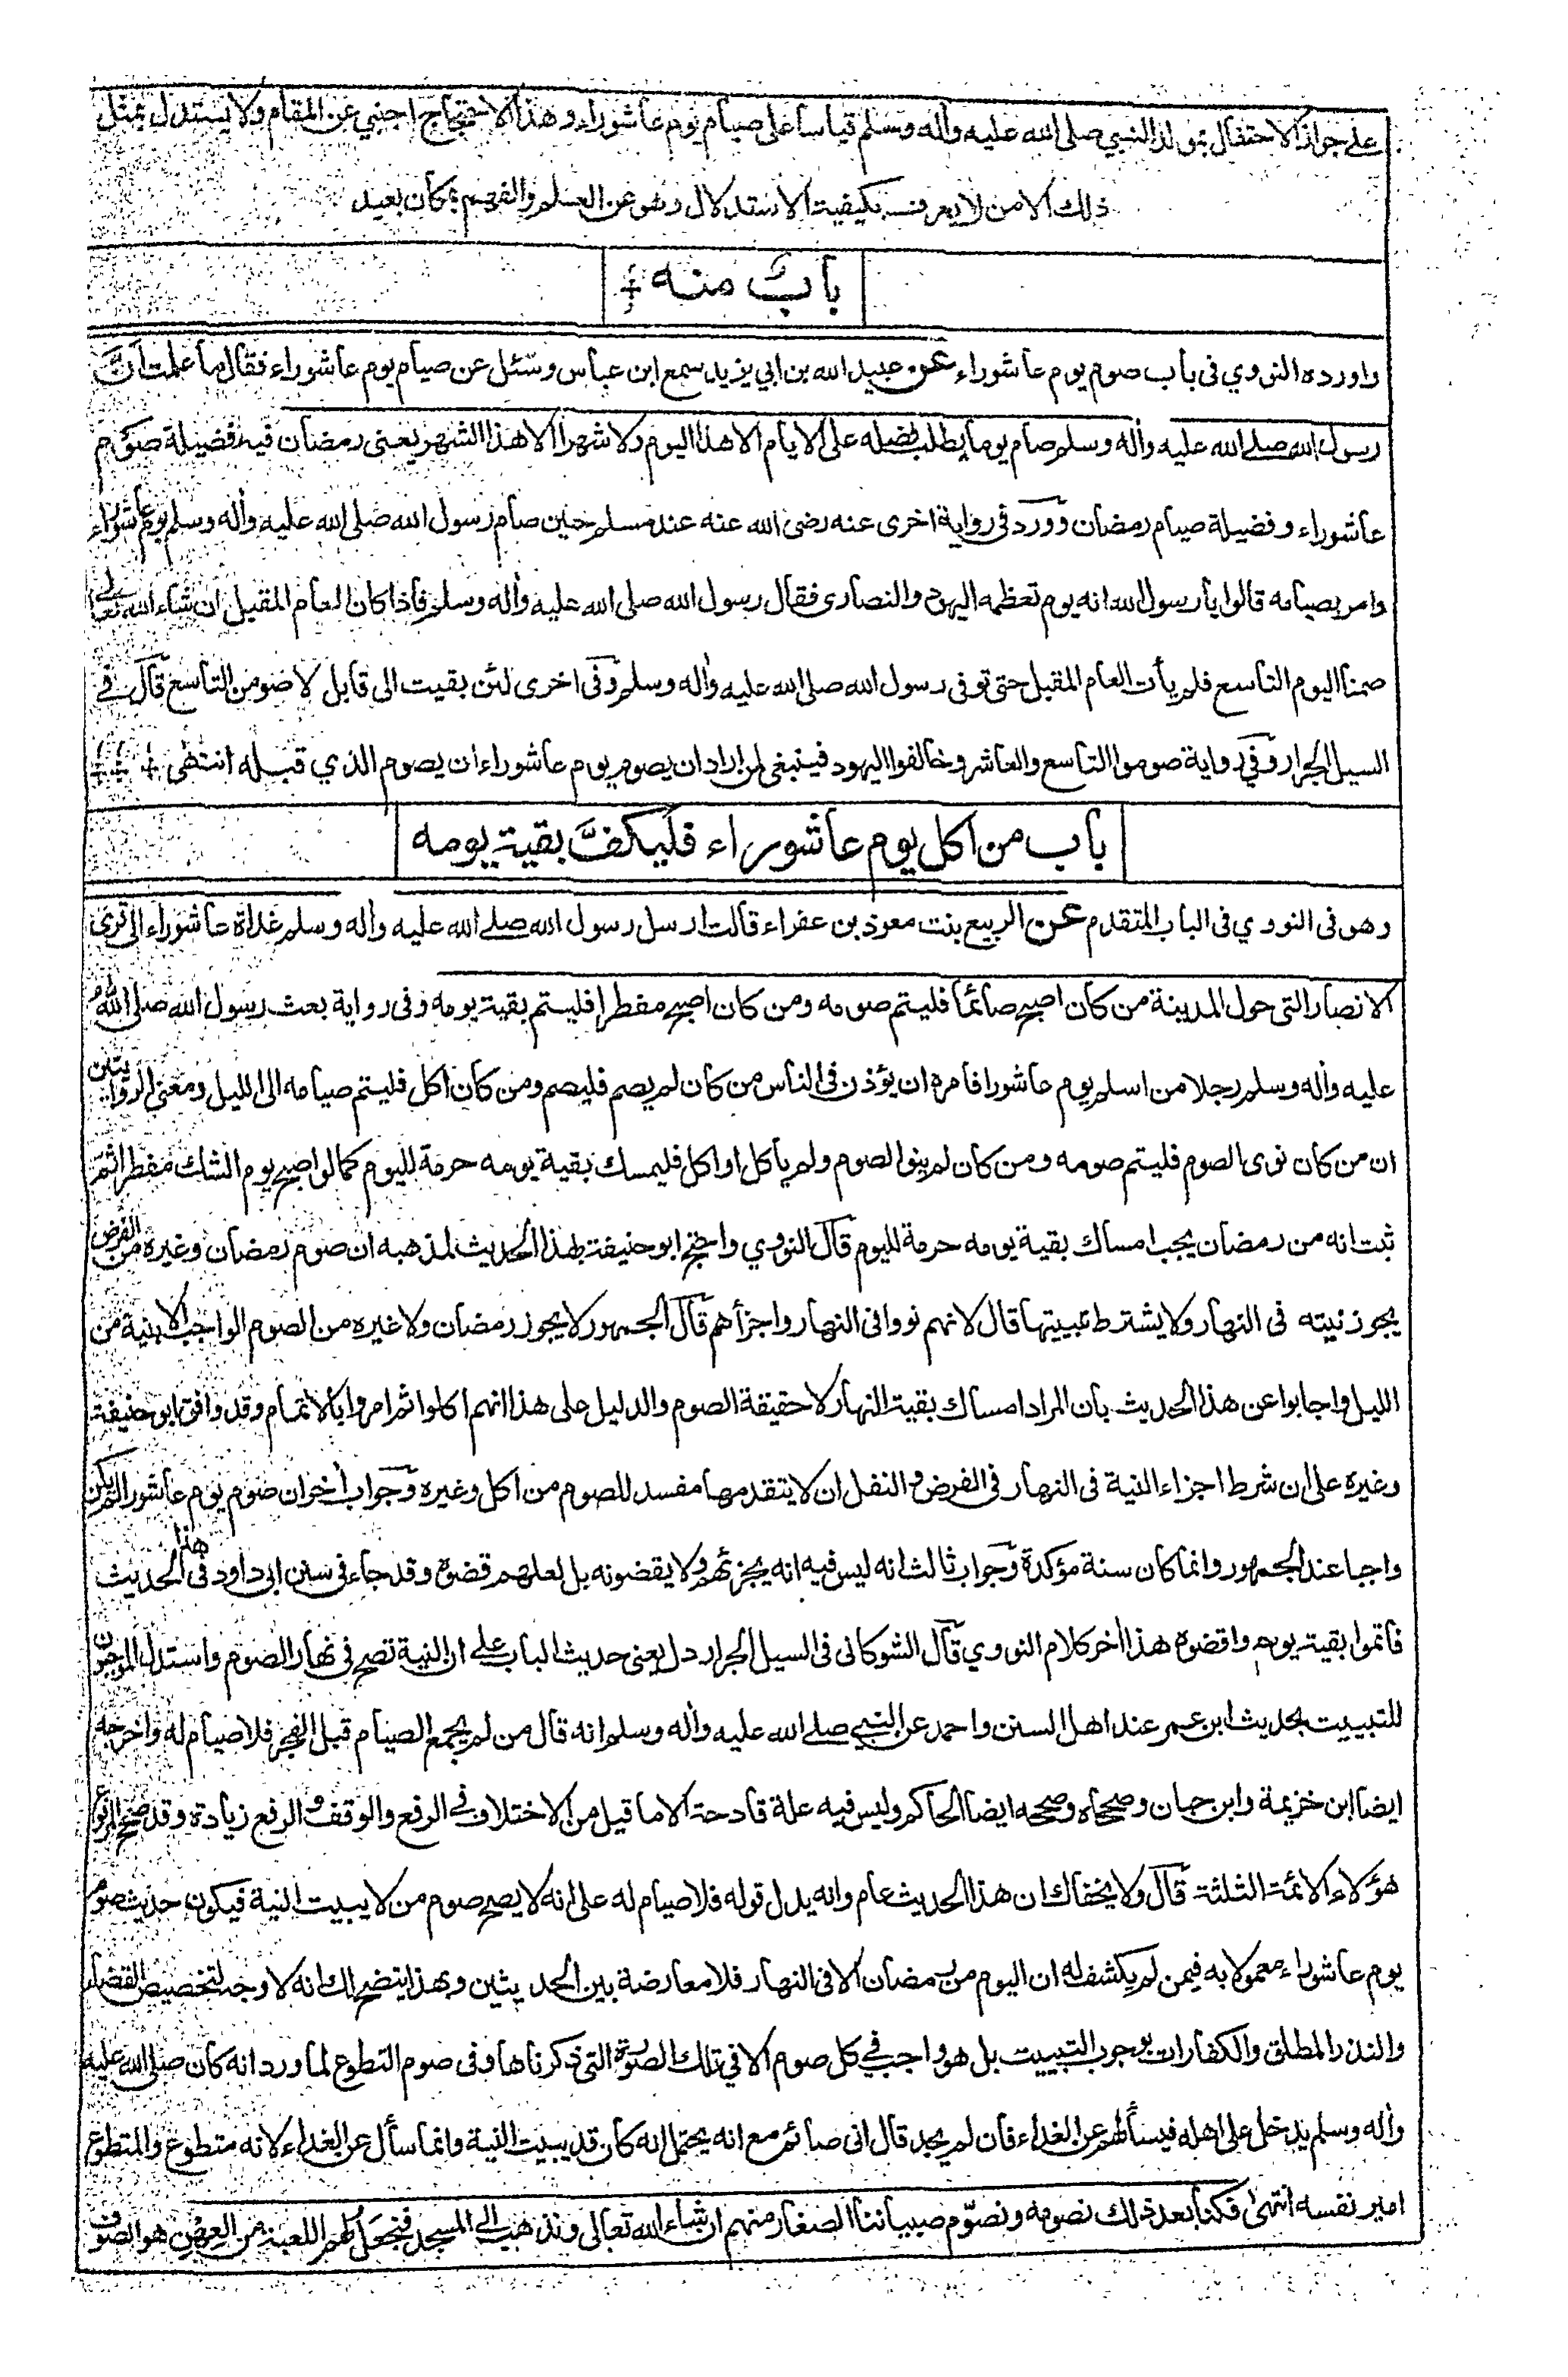 على جواز الاحتفال بمولد النبي صلى الله عليه وأله وسلم قياسا على صيام يوم عاشوراء وهذا الاحتجاج اجنبي عن المقام ولا يستدل بمثل
ذلك الا من لا يعرف كيفية الاستدلال وهو عن العلم والفهم بمكان بعيد
باب منه
واورده النووي فى باب صوم يوم عاشوراء عن عبيد الله بن ابي يزيد سمع ابن عباس وسئل عن صيام يوم عاشوراء فقال ما علمت انَّ
رسول الله صلے الله عليه وأله وسلم صام يوما يطلب فضله على الايام الا هذا اليوم ولا شهرا الا هذا الشهر يعنى رمضان فيه فضيلة صوم
عاشوراء وفضيلة صيام رمضان وورد فى رواية اخرى عنه رضى الله عنه عند مسلم حين صام رسول الله صلى الله عليه وأله وسلم يوم عاشوراء
وامر بصيامه قالوا يا رسول الله انه يوم تعظمه اليهود والنصارى فقال رسول الله صلى الله عليه وأله وسلم فاذا كان العام المقبل ان شاء الله تعالى
صمنا اليوم التاسع فلم يأت العام المقبل حتى توفى رسول الله صلى الله عليه وأله وسلم وفى اخرى لئن بقيت الى قابل لاصومن التاسع قال فے
السيل الجرار وفي رواية صوموا التاسع والعاشر وخالفوا اليهود فينبغى لمن اراد ان يصوم يوم عاشوراء ان يصوم الذي قبله انتهى
باب من اكل يوم عاشوراء فليكفَّ بقية يومه
وهو فى النووي فى الباب المتقدم عن الربيع بنت معوذ بن عفراء قالت ارسل رسول الله صلے الله عليه وأله وسلم غداة عاشوراء الى قرى
الانصار التى حول المدينة من كان اصبح صائما فليتم صومه ومن كان اصبح مفطرا فليتم بقية يومه وفى رواية بعث رسول الله صلى الله
عليه وأله وسلم رجلا من اسلم يوم عاشورا فامره ان يؤذن فى الناس من كان لم يصم فليصم ومن كان اكل فليتم صيامه الى الليل ومعنى الروايتين
ان من كان نوى الصوم فليتم صومه ومن كان لم ينو الصوم ولم ياكل او اكل فليمسك بقية يومه حرمة لليوم كما لو اصبح يوم الشك مفطرا ثم
ثبت انه من رمضان يجب امساك بقية يومه حرمة لليوم قال النووي واحتج ابو حنيفة بهذا الحديث لمذهبه ان صوم رمضان وغيره من الفرض
يجوز نيته فى النهار ولا يشترط تبييتها قال لانهم نووا فى النهار واجزأهم قال الجمهور لا يجوز رمضان ولا غيره من الصوم الواجب الا بنية من
الليل واجابوا عن هذا الحديث بان المراد امساك بقية النهار لا حقيقة الصوم والدليل على هذا انهم اكلوا ثم امروا بالاتمام وقد وافق ابو حنيفة
وغيره على ان شرط اجزاء النية فى النهار فى الفرض والنفل ان لا يتقدمها مفسد للصوم من اكل وغيره وجواب أخر ان صوم يوم عاشورا لم يكن
واجبا عند الجمهور وانما كان سنة مؤكدة وجواب ثالث انه ليس فيه انه يجزئهم ولا يقضونه بل لعلهم قضوه وقد جاء فى سنن ابى داود فى هذا الحديث
فاتموا بقية يومه واقضوه هذا أخر كلام النووي قال الشوكانى فى السيل الجرار دل يعنى حديث الباب على ان النية تصح فى نهار الصوم واستدل الموجبون
للتبييت بحديث ابن عمر عند اهل السنن واحمد عن النبي صلے الله عليه وأله وسلم انه قال من لم يجمع الصيام قبل الفجر فلا صيام له واخرجه
ايضا ابن خزيمة وابن حبان وصححاه وصححه ايضا الحاكم وليس فيه علة قادحة الا ما قيل من الاختلاف فے الرفع والوقف والرفع زيادة وقد صحح الرفع
هؤلاء الائمة الثلثة قال ولا يخفاك ان هذا الحديث عام وانه يدل قوله فلا صيام له على انه لا يصح صوم من لا يبيت النية فيكون حديث صوم
يوم عاشوراء معمولا به فيمن لم يكشف له ان اليوم من رمضان الا فى النهار فلا معارضة بين الحديثين وبهذا يتضح لك انه لا وجه لتخصيص القضاء
والنذر المطلق والكفارات بوجوب التبييت بل هو واجب في كل صوم الا في تلك الصورة التى ذكرناها وفى صوم التطوع لما ورد انه كان صلى الله عليه
وأله وسلم يدخل على اهله فيسألهم عن الغداء فان لم يجد قال انى صائم مع انه يحتمل انه كان قد يبيت النية وانما سأل عن الغداء لانه متطوع والمتطوع
امير نفسه انتهى فكنا بعد ذلك نصومه ونصوّم صبياننا الصغار منهم ان شاء الله تعالى ونذهب الى المسجد فنجعل لهم اللعبة من العِهْن هو الصوف